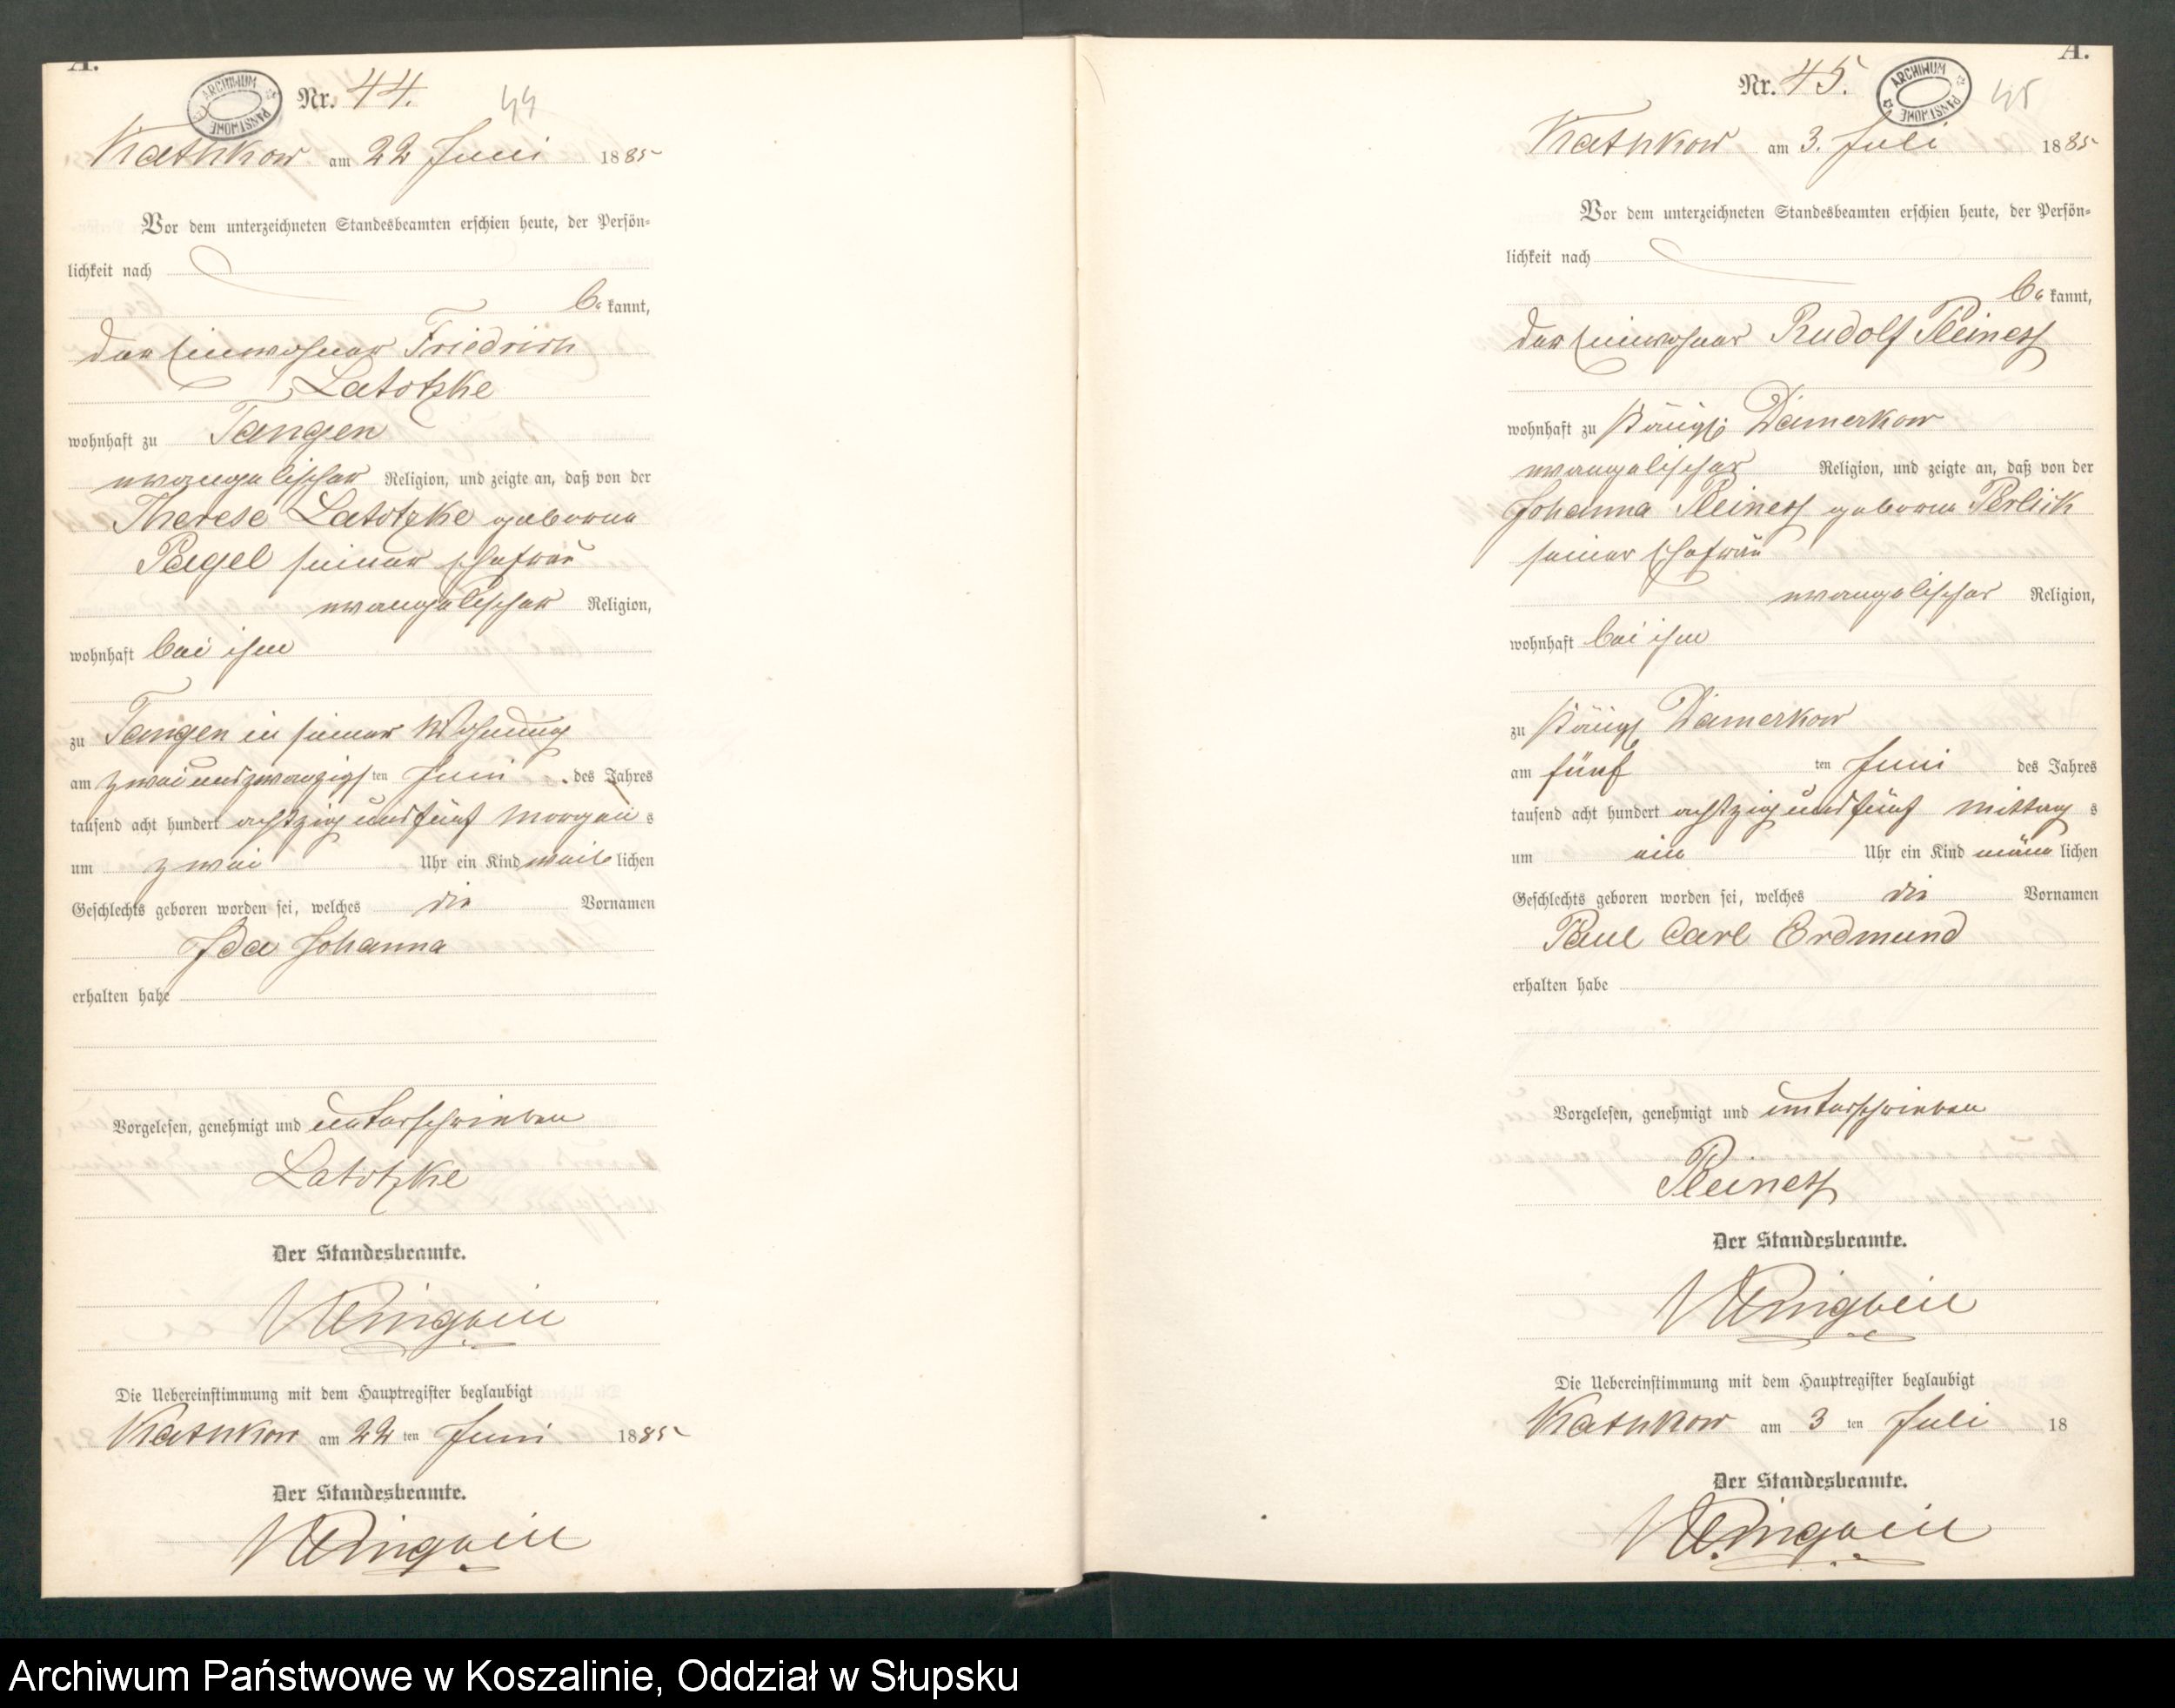 A.
ARCHIWUM PAŃSTWOWE
Nr. 44.
44
Kathkow am 22 Juni 1885
Vor dem unterzeichneten Standesbeamten erschien heute, der Persön-
lichkeit nach
be kannt,
der Einwohner Friedrich
Latotzke
wohnhaft zu Tangen
evangelischer Religion, und zeigte an, daß von der
Therese Latotzke geborene
Pagel seiner Ehefrau
evangelischer Religion,
wohnhaft bei ihm
zu Tangen in seiner Wohnung
am zwei und zwanzigsten Juni des Jahres
tausend acht hundert achtzig und fünf Morgens
um zwei Uhr ein Kind weiblichen
Geschlechts geboren worden sei, welches die Vornamen
Ida Johanna
erhalten habe
Vorgelesen, genehmigt und unterschrieben
Latotzke
Der Standesbeamte.
Die Uebereinstimmung mit dem Hauptregister beglaubigt
Kathkow am 22 ten Juni 1885
Der Standesbeamte.
A.
Nr. 45.
ARCHIWUM PAŃSTWOWE
45
Kathkow am 3. Juli 1885
Vor dem unterzeichneten Standesbeamten erschien heute, der Persön-
lichkeit nach
be kannt,
der Einwohner Rudolf Pleines
wohnhaft zu Damerkow
evangelischer Religion, und zeigte an, daß von der
Johanna Pleines geborene Perlick
seiner Ehefrau
evangelischer Religion,
wohnhaft bei ihm
zu Damerkow
am fünf ten Juni des Jahres
tausend acht hundert achtzig und fünf Mittag s
um ein Uhr ein Kind männlichen
Geschlechts geboren worden sei, welches die Vornamen
Paul Carl Erdmund
erhalten habe
Vorgelesen, genehmigt und unterschrieben
Pleines
Der Standesbeamte.
Die Uebereinstimmung mit dem Hauptregister beglaubigt
Kathkow am 3 ten Juli 18
Der Standesbeamte.
Archiwum Państwowe w Koszalinie, Oddział w Słupsku